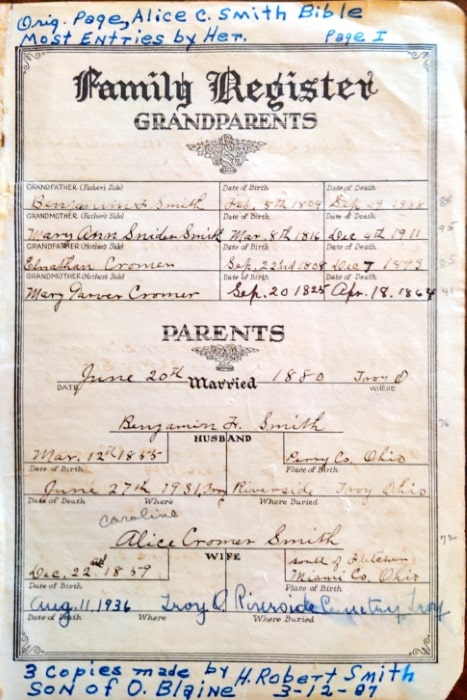 Orig. Page, Alice C. Smith Bible
Most Entries by Her. Page I
Family Register
GRANDPARENTS
GRANDFATHER (Father's Side) Date of Birth Date of Death
Benjamin Smith Feb. 5th 1809 Sep 19
GRANDMOTHER (Father's Side) Date of Birth Date of Death
Mary Ann Snider Smith Mar. 8th 1816 Dec 4th 1911 95
GRANDFATHER (Mother's Side) Date of Birth Date of Death
Elnathan Cromer Sep. 22nd 1808 Dec 7 1893 85
GRANDMOTHER (Mother's Side) Date of Birth Date of Death
Mary Garver Cromer Sep. 20 1825 Apr. 18. 1864
PARENTS
June 20th Married 1880 Troy O
DATE WHERE
Benjamin H. Smith 76
HUSBAND
Mar. 12th 1855 Perry Co. Ohio
Date of Birth Place of Birth
June 27th 1931, Troy Riverside Troy Ohio
Date of Death Where Where Buried
Caroline
Alice Cromer Smith
WIFE
Dec. 22nd 1859 south of Fletcher
Miami Co. Ohio
Date of Birth Place of Birth
Aug. 11, 1936 Troy O Riverside Cemetry, Troy
Date of Death Where Where Buried
3 Copies made by H. Robert Smith
Son of O. Blaine 3-12-